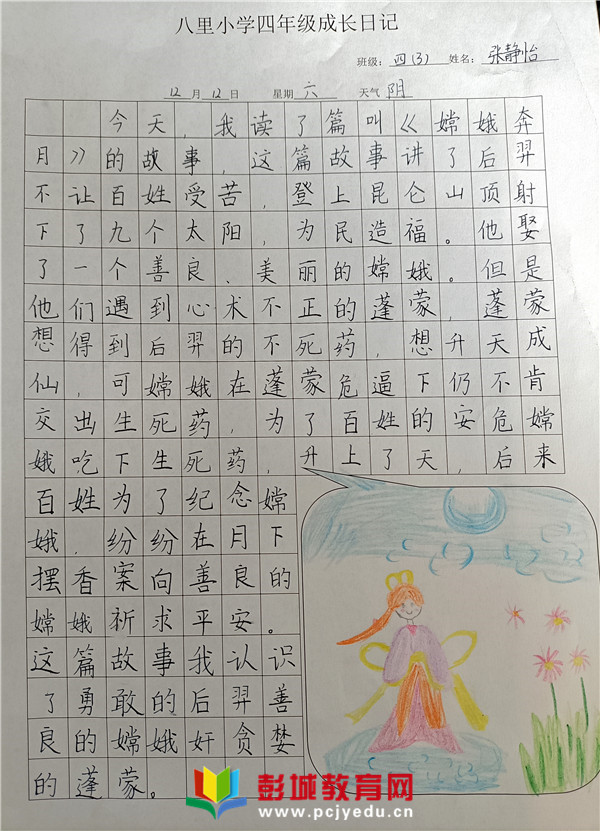 八里小学四年级成长日记
班级: 四(3) 姓名: 张静怡
12月12日 星期六 天气 阴
今天,我读了篇叫《嫦娥奔
月》的故事,这篇故事讲了后羿
不让百姓受苦,登上昆仑山顶射
下了九个太阳,为民造福。他娶
了一个善良、美丽的嫦娥。但是
他们遇到心术不正的蓬蒙,蓬蒙
想得到后羿的不死药,想升天成
仙,可嫦娥在蓬蒙危逼下仍不肯
交出生死药,为了百姓的安危嫦
娥吃下生死药,升上了天,后来
百姓为了纪念嫦
娥,纷纷在月下
摆香案向善良的
嫦娥祈求平安。
这篇故事我认识
了勇敢的后羿善
良的嫦娥奸贪婪
的蓬蒙。
彭城教育网
www.pcjyedu.com